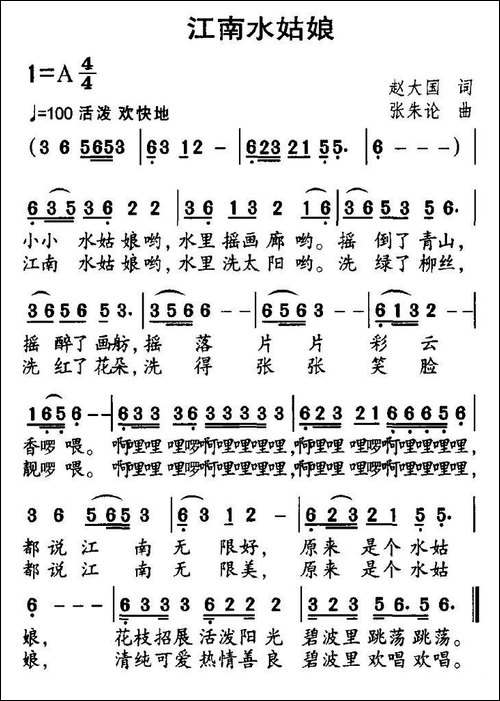 江南水姑娘
1=A 4/4
赵大国 词
♩=100 活泼 欢快地
张朱论 曲
(3 6 5653 | 63 12 - | 6223 21 55. | 6 - - - )
635 36 2 2 | 36 13 2 16 | 3653 56.
小小 水姑娘哟,水里摇画廊哟。摇 倒了青山,
江南 水姑娘哟,水里洗太阳哟。洗 绿了柳丝,
3656 53. | 3566 - - | 3566 - - | 6132 - -
摇 醉了画舫,摇 落 片 片 彩 云
洗 红了花朵,洗 得 张 张 笑 脸
165 6 - - | 633 36 33333 | 623 21 66656
香啰 喂。 啊哩哩 哩啰啊哩哩哩哩,啊哩哩 哩啰啊哩哩哩哩,
靓啰 喂。 啊哩哩 哩啰啊哩哩哩哩,啊哩哩 哩啰啊哩哩哩哩,
3 6 5653 | 63 12 - | 6223 21 55.
都 说 江 南 无 限 好, 原 来 是 个 水 姑
都 说 江 南 无 限 美, 原 来 是 个 水 姑
6 - - - | 6333 6333 6223 | 323 56. 56. ‖
娘, 花枝招展 活泼阳光 碧波里 跳荡 跳荡。
娘, 清纯可爱 热情善良 碧波里 欢唱 欢唱。